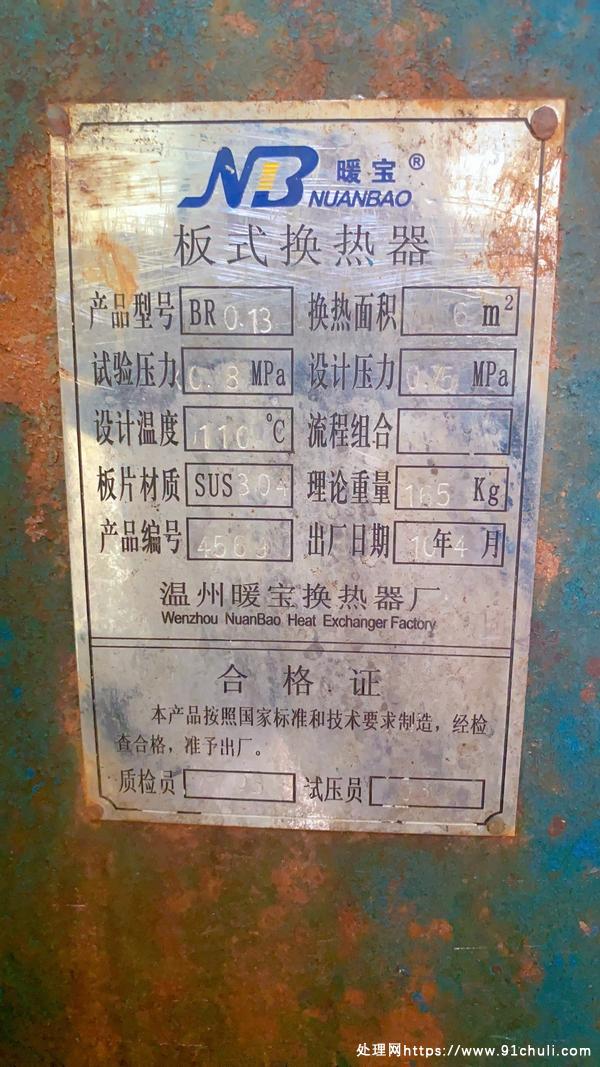 NB 暖宝®
NUANBAO
板式换热器
产品型号 BR 0.13 换热面积 6 m²
试验压力 0.8 MPa 设计压力 0.75 MPa
设计温度 110 ℃ 流程组合
板片材质 SUS304 理论重量 165 Kg
产品编号 4569 出厂日期 10年4月
温州暖宝换热器厂
Wenzhou NuanBao Heat Exchanger Factory
合格证
本产品按照国家标准和技术要求制造，经检
查合格，准予出厂。
质检员 试压员
处理网https://www.91chuli.com